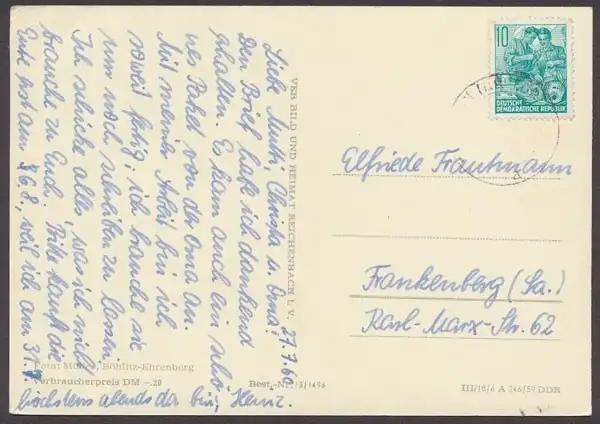 Liebe Mutti, Christa u. Oma! 27.7.60
Den Brief habe ich dankend
erhalten. Es kam auch ein schö-
nes Paket von der Oma an.
Mit meiner Arbeit bin ich
soweit fertig, ich brauche sie
nur noch schreiben zu lassen.
Ich schicke alles, was ich nicht
brauche zu Euch. Bitte kauft die
erst am 6.8., weil ich am 31.7.
höchstens abends da bin, Heinz.
VEB BILD UND HEIMAT REICHENBACH I. V.
Foto: Müller, Böhlitz-Ehrenberg
Verbraucherpreis DM –.20
Best.-Nr. 13/1496
10
DEUTSCHE
DEMOKRATISCHE REPUBLIK
Elfriede Frautmann
Frankenberg (Sa.)
Karl-Marx-Str. 62
III/18/6 A 246/59 DDR